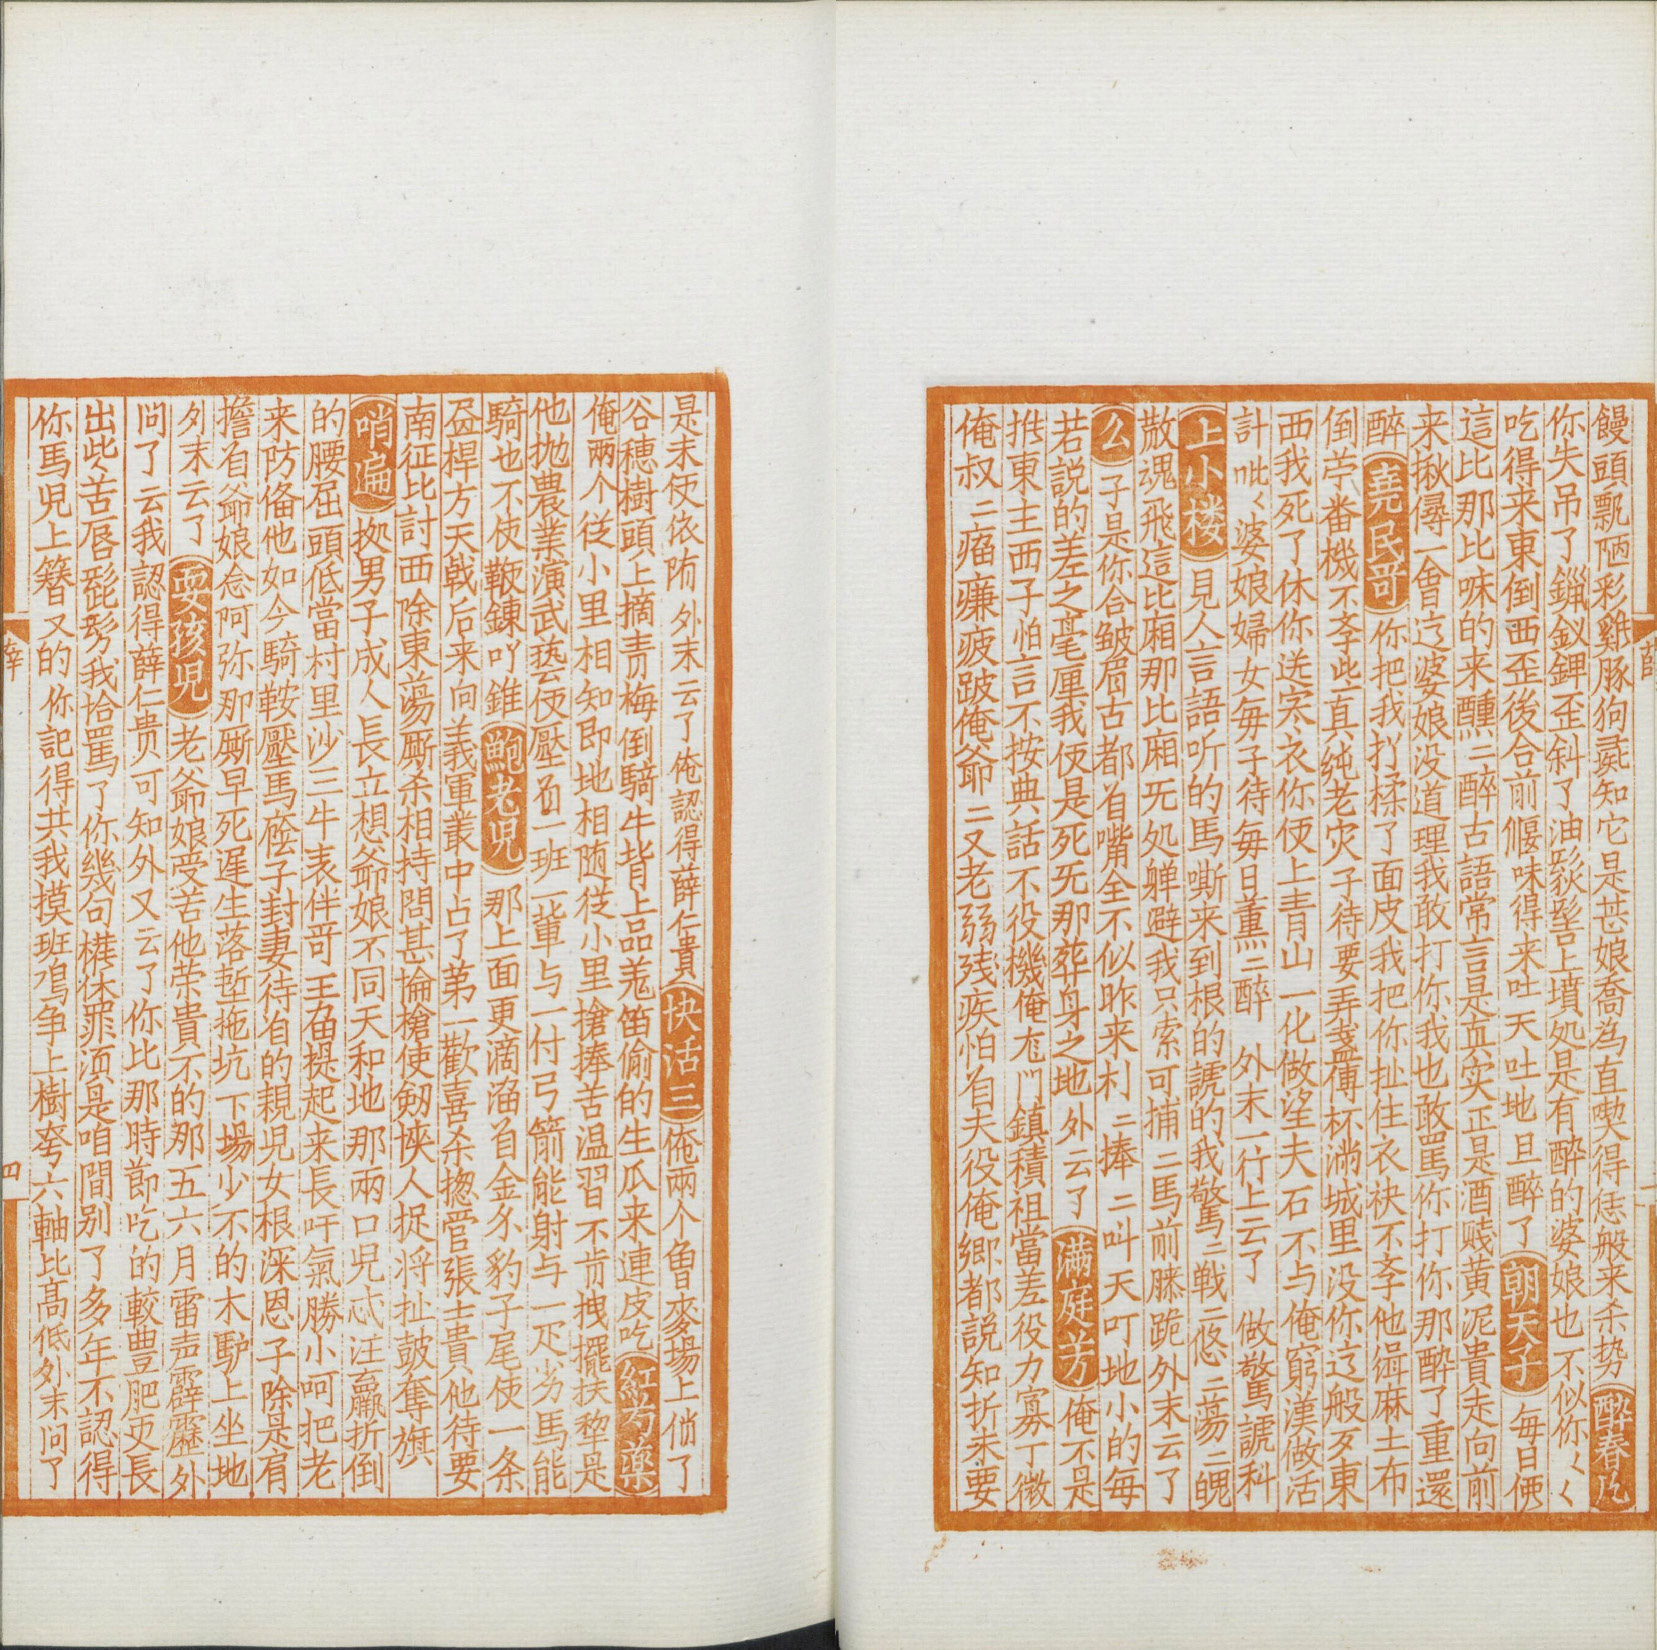 饅頭瓢陋彩雞豚狗彘知它是甚娘喬為直喫得恁般来杀势 醉春凡
你失吊了鈒鉀歪斜了油髟髻上墳処是有醉的婆娘也不似你〱〱
吃得来東倒西歪後合前偃味得来吐天吐地旦醉了 朝天子 每日
這比那比味的来醺二醉古語常言是真实正是酒賎黄泥貴走向前
来揪尋一會这婆娘没道理我敢打你我也敢罵你打你那醉了重還
醉 尭民哥 你把我打揉了面皮我把你扯住衣袂不孝他緝麻土布
倒苧番機不孝些真純老灾子待要弄盞傳杯淌城里没你这般歹東
西我死了休你送寒衣你便上青山一化做望夫石不与俺窮漢做活
計呲〱婆娘婦女每子待每日薰二醉 外末一行上云了 做驚諕科
上小楼 見人言語听的馬嘶来到根的諕的我驚二戦二悠二蕩二魄
散魂飛這比廂那比廂旡処軃避我只索可捕二馬前膝跪外末云了
么 子是你合皱眉古都着嘴全不似昨来村二捧二叫天叮地小的每
若説的差之毫厘我便是死旡那葬身之地外云了 满庭芳 俺不是
推東主西子怕言不按典話不役機俺門鎮積祖當差役力寡丁微
俺叔二痼癢疲跛俺爺二又老弱残疾怕着夫役俺郷都説知折末要
是末使依陏 外末云了俺認得薛仁貴 快活三 俺两个曽麥場上偷了
谷穗樹頭上摘青梅倒騎牛背上品羗笛偷的生瓜来連皮吃 紅芍藥
俺两个従小里相知即地相随従小里搶捧苦温習不肯拽擺扶犂是
他抛農業演武藝便壓着一班一輩与一付弓箭能射与一疋劣馬能
騎也不使鞭鍊吖錐 鮑老児 那上面更滴溜着金尒豹子尾使一条
盔桿方天戟后来向義軍叢中占了第一歡喜杀揔管張士貴他待要
南征比討西除東蕩厮杀相持問甚掄槍使劒挾人捉将扯鼓奪旗
哨遍 拠男子成人長立想爺娘不同天和地那兩口児忒汪羸折倒
的腰屈頭低當村里沙三牛表伴哥王㽞提起来長吁氣勝小呵把老
来防俻他如今騎鞍壓馬䕃子封妻待着的親児女根深恩子除是有
擔着爺娘念阿弥那厮早死遲生落塹拖坑下場少不的木馿上坐地
外末云了 耍孩児 老爺娘受苦他荣貴不的那五六月雷声霹靂外
问了云我認得薛仁贵可知外又云了你比那時節吃的較豊肥更長
出些苦唇髭髣我恰罵了你幾句權休罪湏是咱間别了多年不認得
你馬児上簪又的你記得共我摸班鳩争上樹夸六軸比髙低外末问了
薛
四